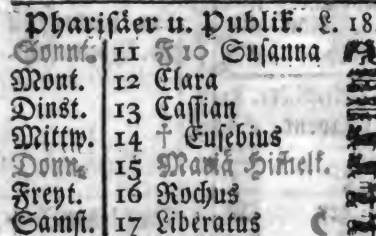 Phariſäer u. Publik. L. 18
Sonnt. 11 F 10 Suſanna
Mont. 12 Clara
Dinst. 13 Caſſian
Mittw. 14 † Euſebius
Donn. 15 Mariä Him̄elf.
Freyt. 16 Rochus
Samſt. 17 Liberatus ☾